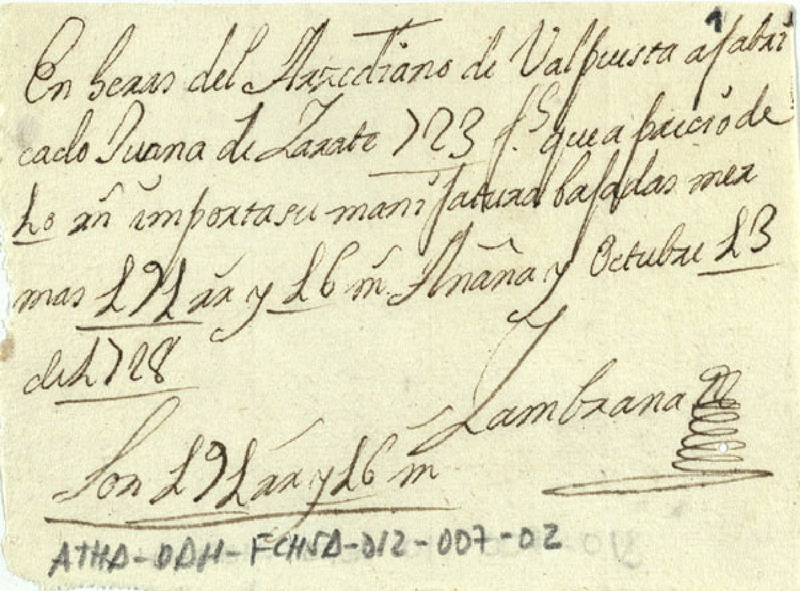 1
En heras del Arzediano de Valpuesta a fabri
cado Juana de Zarate 723 f.s que a precio de
10 mñ importa su manifatura bajadas mer
mas 191 rr y 16 m̃. Añana y Octubre 13
de 1728
Zambrana
Son 191 rr y 16 m̃
ATHA-DAH-FCHSA-012-007-02